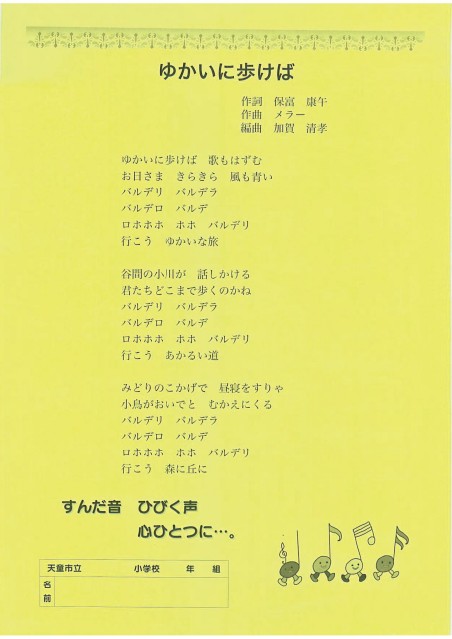 ゆかいに歩けば
作詞　保富　康午
作曲　メラー
編曲　加賀　清孝
ゆかいに歩けば　歌もはずむ
お日さま　きらきら　風も青い
バルデリ　バルデラ
バルデロ　バルデ
ロホホホ　ホホ　バルデリ
行こう　ゆかいな旅
谷間の小川が　話しかける
君たちどこまで歩くのかね
バルデリ　バルデラ
バルデロ　バルデ
ロホホホ　ホホ　バルデリ
行こう　あかるい道
みどりのこかげで　昼寝をすりゃ
小鳥がおいでと　むかえにくる
バルデリ　バルデラ
バルデロ　バルデ
ロホホホ　ホホ　バルデリ
行こう　森に丘に
すんだ音　ひびく声
心ひとつに…。
天童市立　小学校　年　組
名前